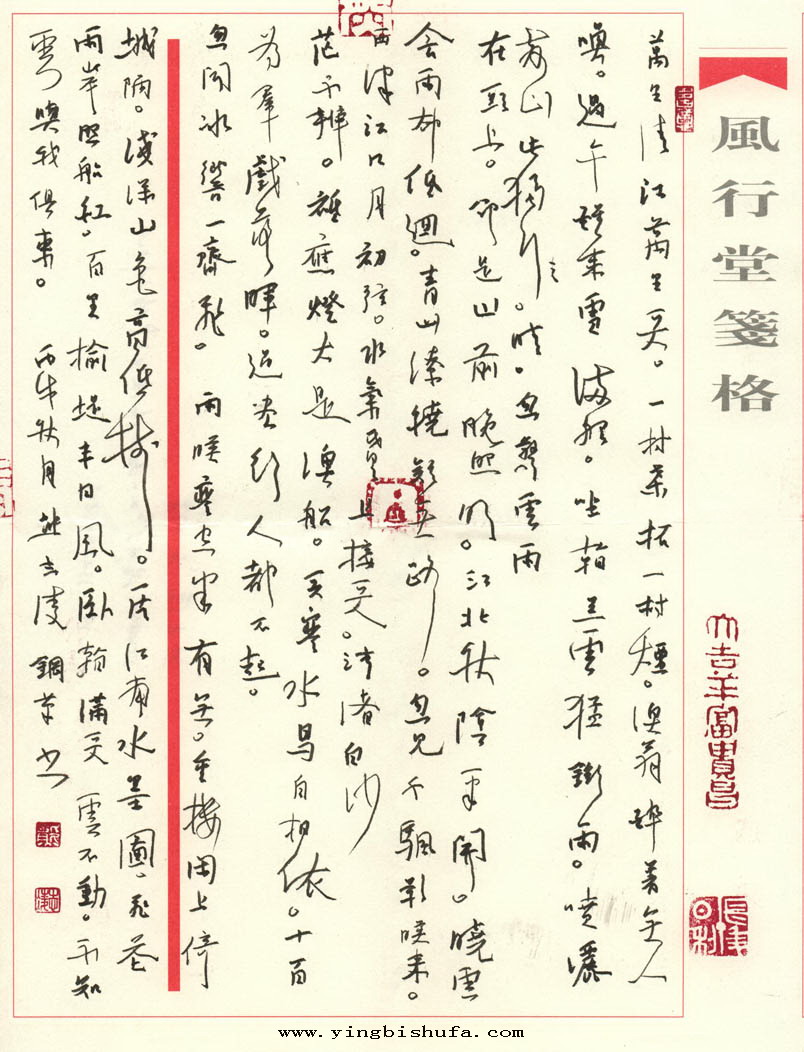 風行堂箋格
萬里清江萬里天。一村桑柘一村煙。漁翁醉著無人
喚。過午醒來雪滿船。坐看黑雲猛銜雨。噴灑
前山此獨晴。忽驚雲雨
在頭上。卻是山前晚照明。江北秋陰一半開。曉雲
含雨卻低迴。青山繚繞疑無路。忽見千颿影映來。
西津江口月初弦。水氣昏昏上接天。清渚白沙
茫不辨。應燈火是漁船。天寒水鳥自相依。十百
為羣戲落暉。過盡行人都不起。
忽聞冰響一齊飛。雨映寒空半有無。重樓閑上倚
城隅。淺深山色高低樹。一片江南水墨圖。飛花
兩岸照船紅。百里榆堤半日風。臥看滿天雲不動。不知
雲與我俱東。丙戌秋月 鋼筆書
大吉羊富貴昌
www.yingbishufa.com